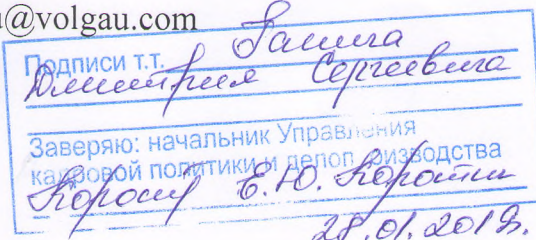 @volgau.com
Подписи т.т. Гапича
Дмитрия Сергеевича
Заверяю: начальник Управления
кадровой политики и делопроизводства
Е.Ю.
28.01.2019.